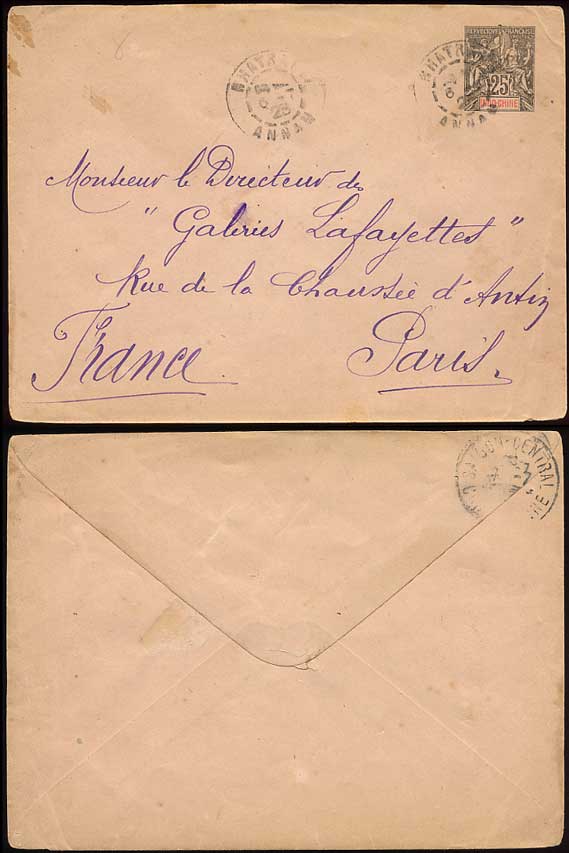 REPUBLIQUE FRANÇAISE
25
INDO-CHINE
NHATRANG
ANNAM
NHATRANG
ANNAM
Monsieur le Directeur des
"Galeries Lafayettes"
Rue de la Chaussée d'Antin
France Paris.
SAIGON-CENTRAL